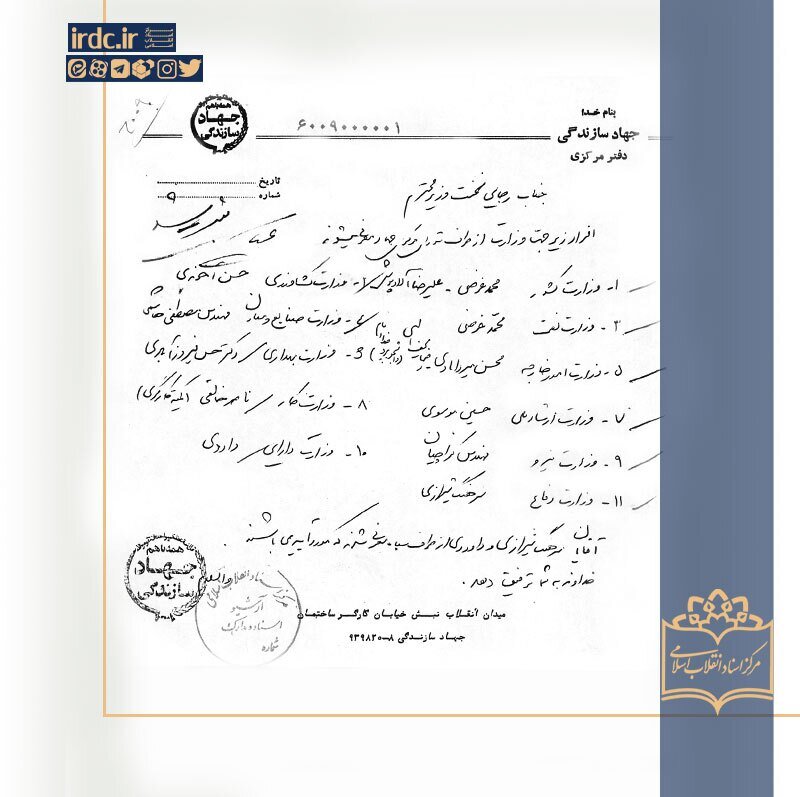 irdc.ir
مرکز اسناد انقلاب اسلامی
بنام خدا
جهاد سازندگی
دفتر مرکزی
۶۰۰۹۰۰۰۰۰۱
همه باهم
جهاد
سازندگی
تاریخ
شماره
جناب رجایی نخست وزیر محترم
افراد زیر جهت وزارت از طرف شورای مرکزی جهاد معرفی میشوند
۱- وزارت کشور محمد غرضی - علیرضا آلادپوش ۲- وزارت کشاورزی حسن آخوندی
۳- وزارت نفت محمد غرضی ۴- وزارت صنایع و معادن مهندس مصطفی هاشمی
۵- وزارت امور خارجه محسن میردامادی ۶- وزارت بهداری دکتر حسن فیروزآبادی
۷- وزارت ارشاد ملی حسین موسوی ۸- وزارت کار ناصر خالقی (کمیته کارگری)
۹- وزارت نیرو مهندس کراچیان ۱۰- وزارت دارایی داودی
۱۱- وزارت دفاع سرهنگ شیرازی
آقایان سرهنگ شیرازی و داودی از طرف سپاه معرفی شدند که مورد تأیید می باشند.
خداوند به شما توفیق دهد.
همه باهم
جهاد
سازندگی
مرکز اسناد انقلاب اسلامی
آرشیو
اسناد و مدارک
شماره
میدان انقلاب نبش خیابان کارگر ساختمان
جهاد سازندگی ۸-۹۳۹۸۲۰
مرکز اسناد انقلاب اسلامی